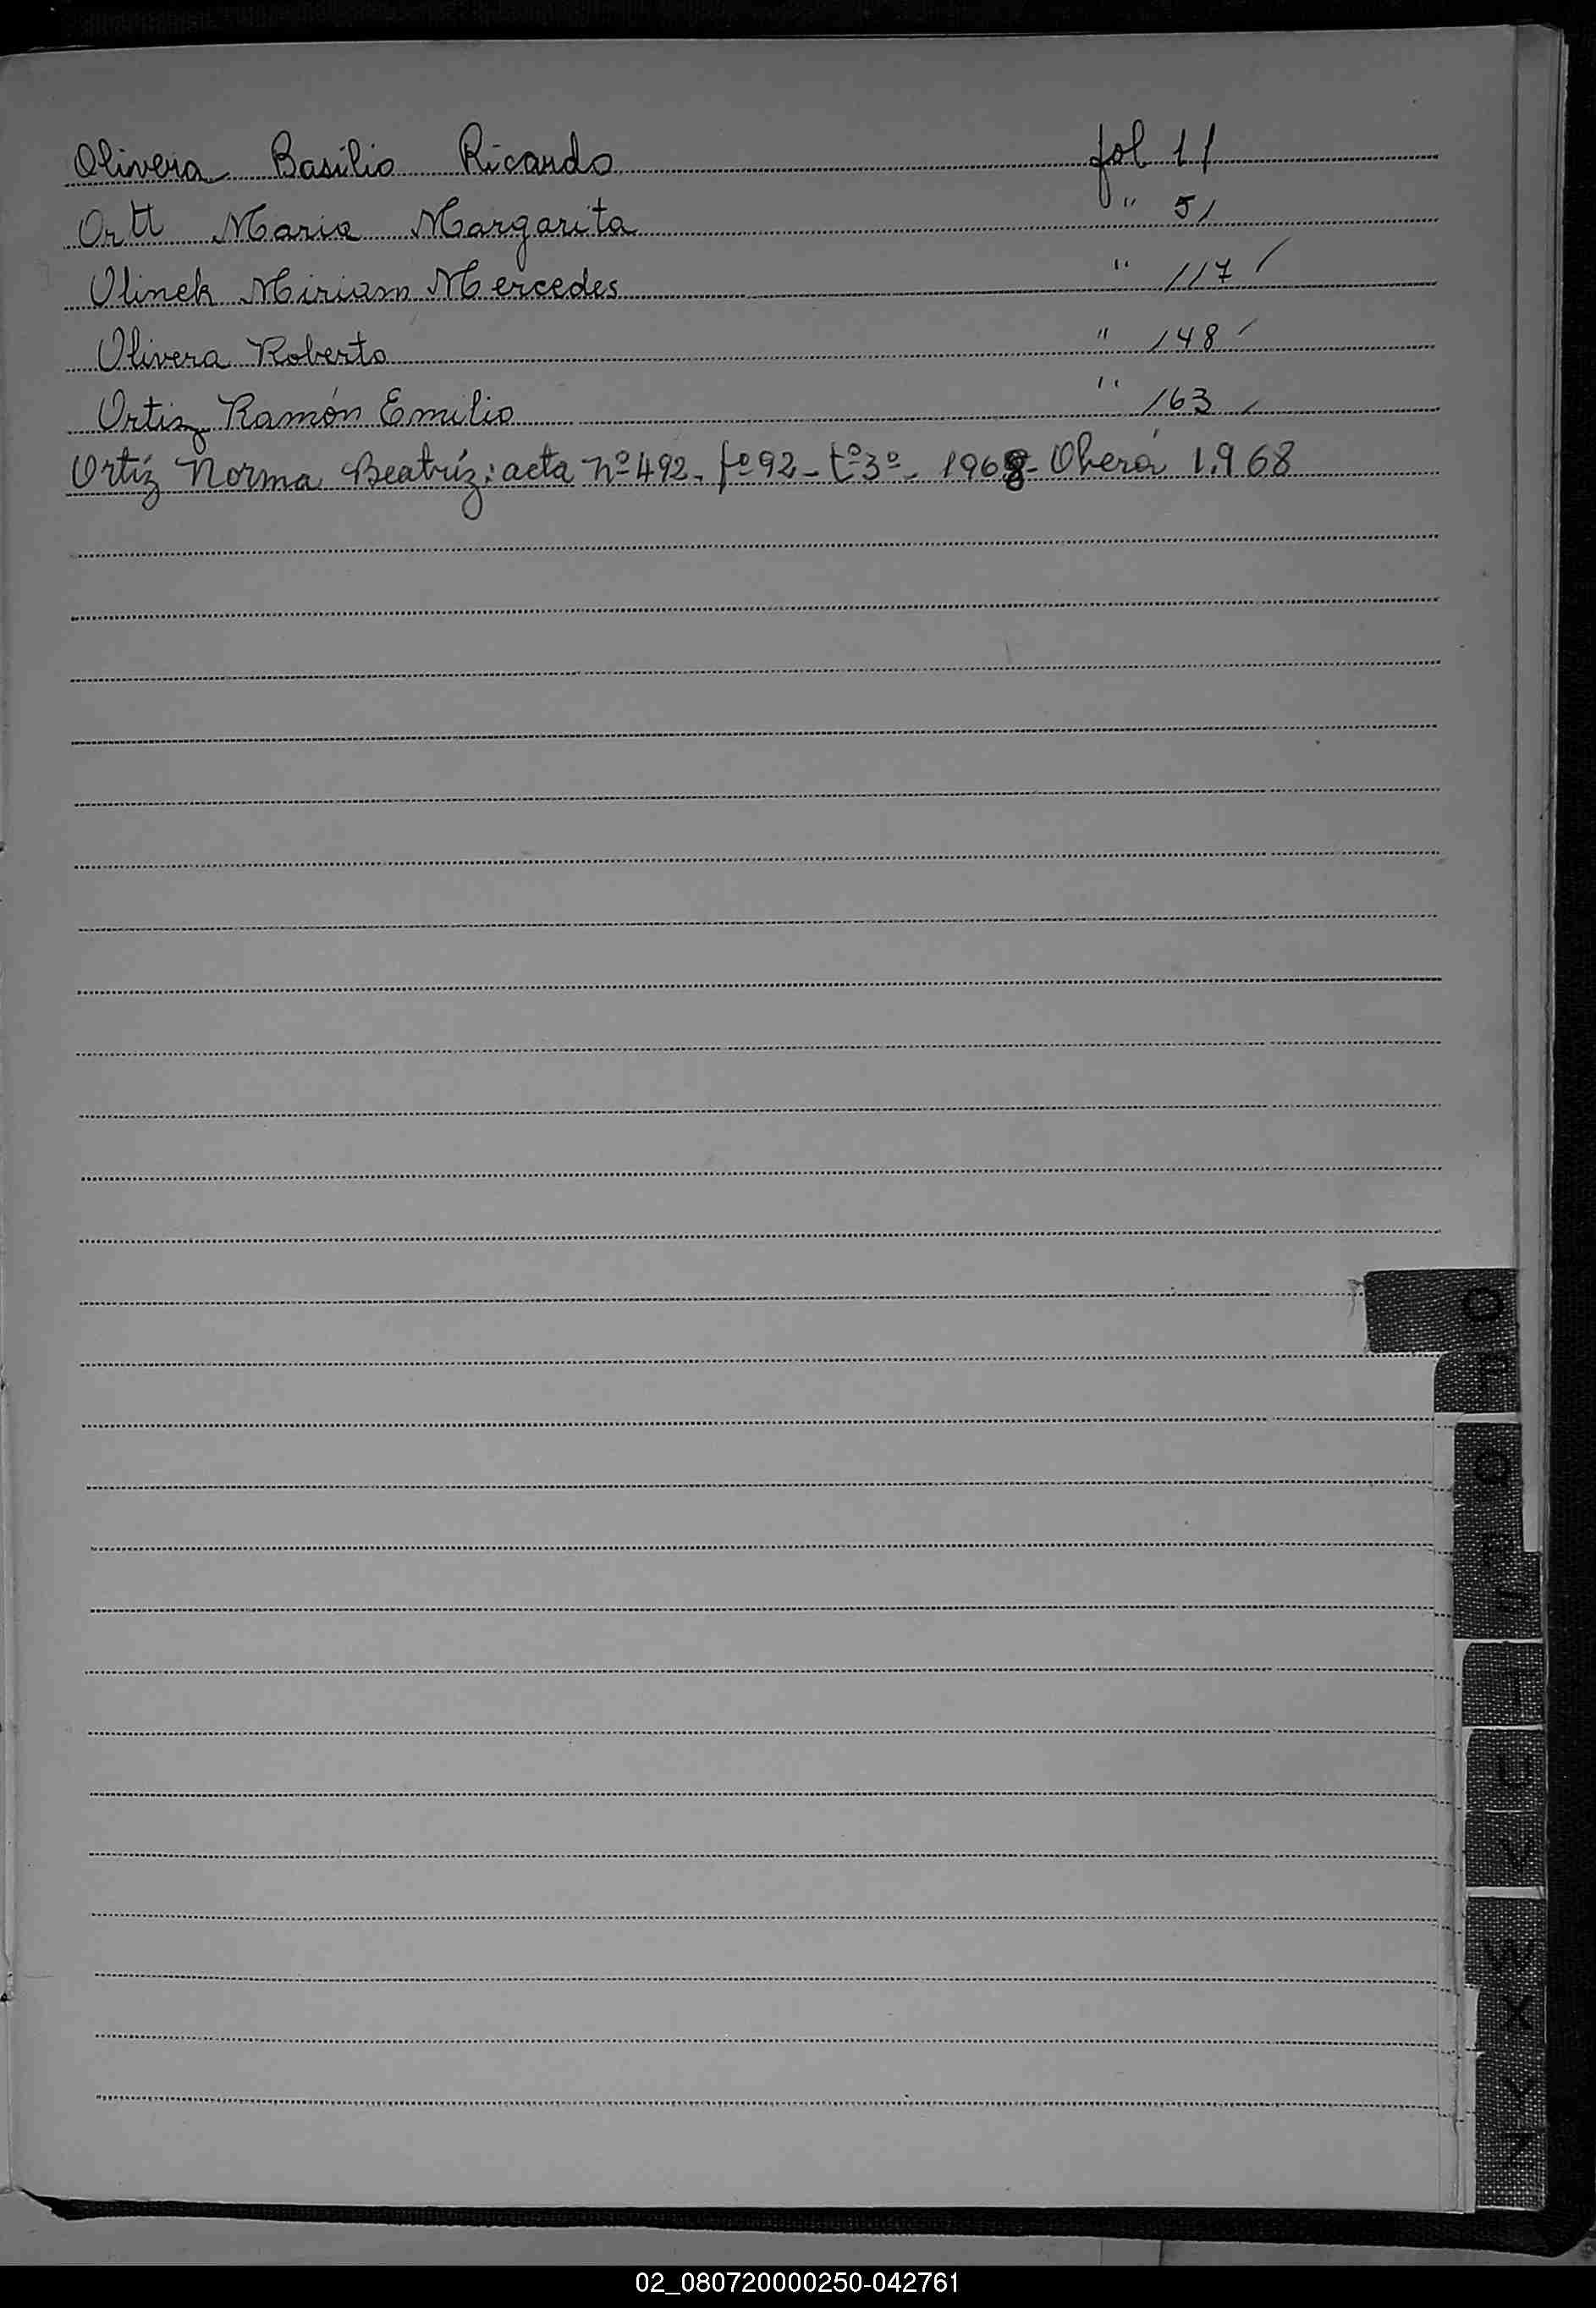 Olivera Basilio Ricardo fol 11
Ortt Maria Margarita " 51
Olinek Miriam Mercedes " 117
Olivera Roberto " 148
Ortiz Ramón Emilio " 163
Ortíz Norma Beatríz: acta nº 492- fº 92- tº 3º- 1968- Oberá 1.968
O
P
Q
R
S
T
U
V
W
X
Y
Z
02_080720000250-042761